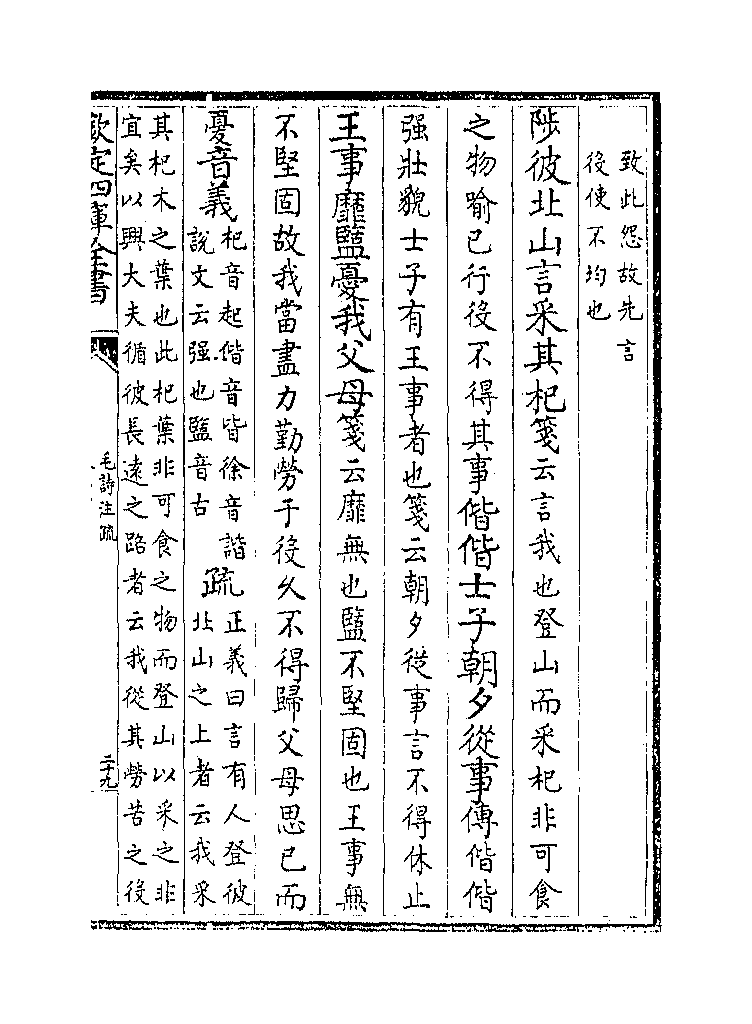 致此怨故先言
後使不均也
陟彼北山言采其杞箋云言我也登山而采杞非可食
之物喻己行役不得其事偕偕士子朝夕從事傳偕偕
强壯貌士子有王事者也箋云朝夕從事言不得休止
王事靡盬憂我父母箋云靡無也盬不堅固也王事無
不堅固故我當盡力勤勞于役久不得歸父母思己而
憂音義杞音起偕音皆徐音諧
說文云强也盬音古
疏正義曰言有人登彼
北山之上者云我采
其杞木之葉也此杞葉非可食之物而登山以采之非
宜矣以興大夫循彼長遠之路者云我從其勞苦之役
欽定四庫全書
毛詩注疏
二十九